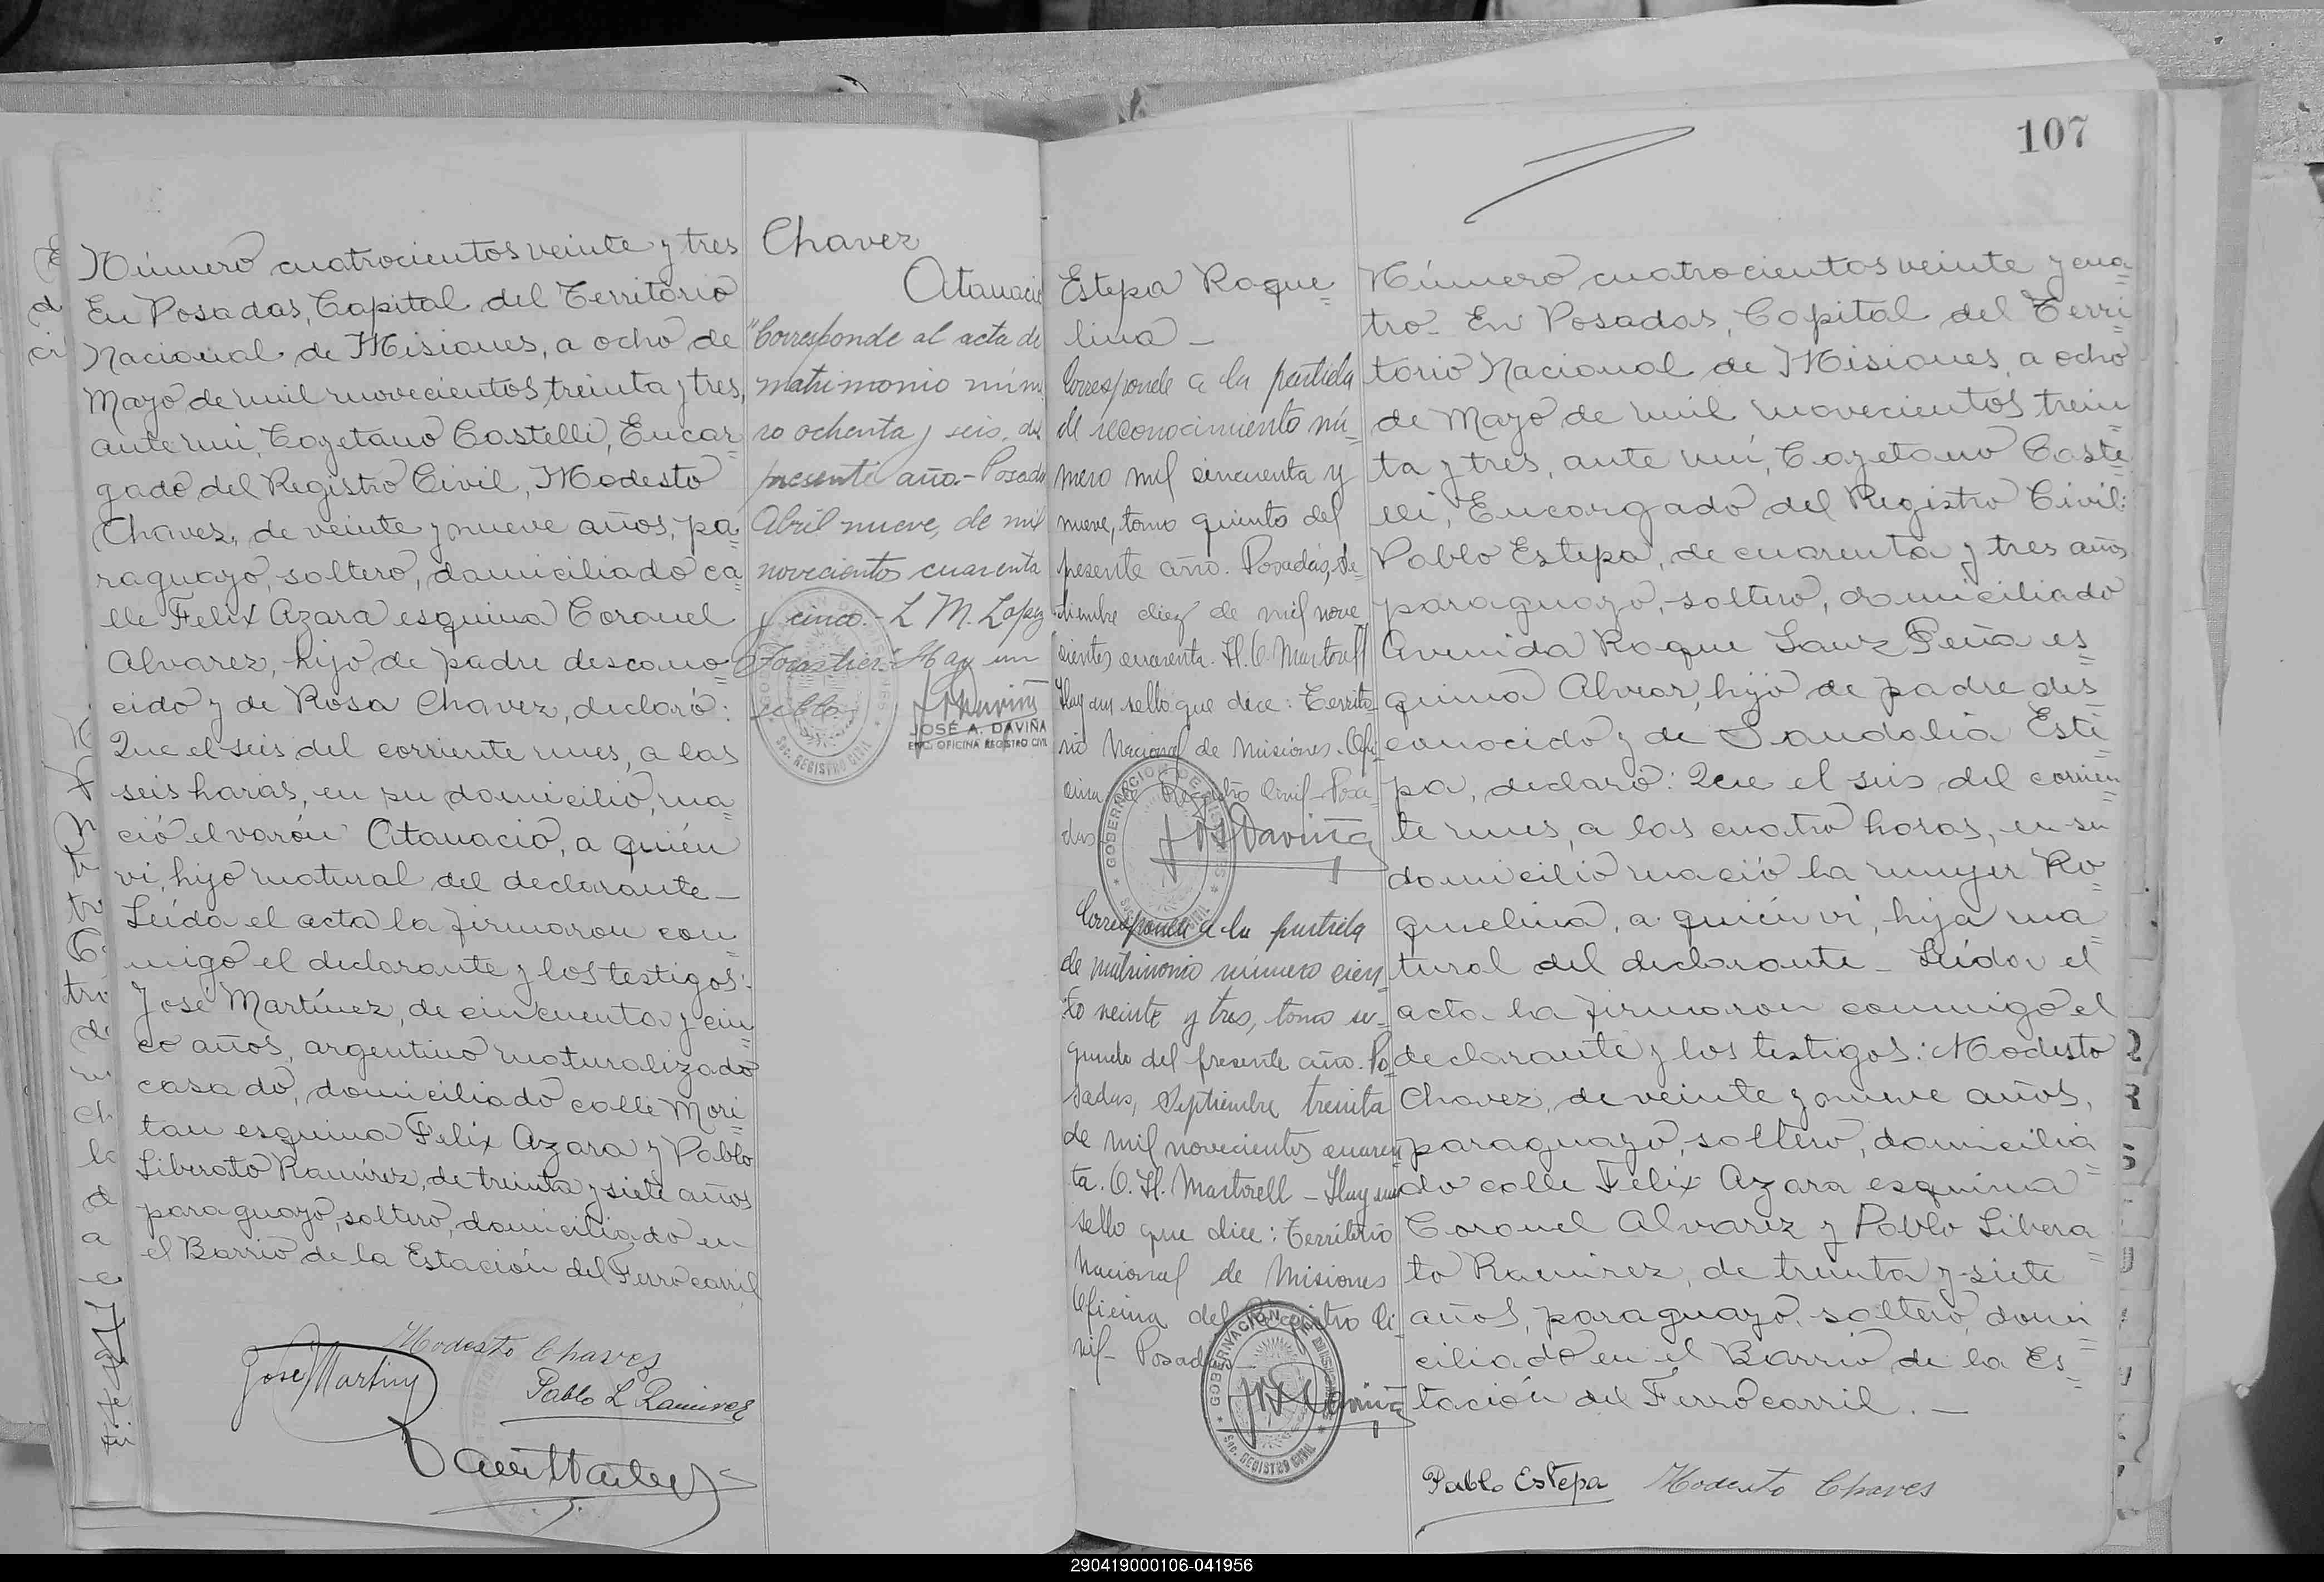 107
Número cuatrocientos veinte y tres
En Posadas, Capital del Territorio
Nacional de Misiones, a ocho de
Mayo de mil novecientos treinta y tres,
ante mi, Cayetano Castelli, Encar=
gado del Registro Civil, Modesto
Chavez, de veinte y nueve años, pa=
raguayo, soltero, domiciliado ca=
lle Felix Azara esquina Coronel
Alvarez, hijo de padre descono=
cido y de Rosa Chavez, declaró:
Que el seis del corriente mes, a las
seis horas, en su domicilio, na=
ció el varón Atanacio, a quién
vi, hijo natural del declarante_
Leída el acta la firmaron con=
migo el declarante y los testigos:
José Martínez, de cincuenta y cin=
co años, argentino naturalizado
casado, domiciliado calle Mori=
tan esquina Felix Azara y Pablo
Liberato Ramírez, de treinta y siete años
paraguayo, soltero, domiciliado en
el Barrio de la Estación del Ferrocarril
Modesto Chaves
José Martinez
Pablo L Ramirez
Chavez
Atanacio
"Corresponde al acta de
matrimonio núme
ro ochenta y seis, del
presente año.- Posadas
Abril nueve, de mil
novecientos cuarenta
y cinco.- L M. Lopez
Forastier. Hay un
sello.
JOSÉ A. DAVIÑA
ENC. OFICINA REGISTRO CIVIL
Estepa Roque=
lina _
Corresponde a la partida
de reconocimiento nú=
mero mil cincuenta y
nueve, tomo quinto del
presente año. Posadas, Se=
tiembre diez de mil nove
cientos cuarenta. H. C. Martorell
Hay un sello que dice: Territo=
rio Nacional de Misiones. Ofi=
cina del Registro Civil - Posa=
das
GOBERNACION DE MISIONES
SEC. REGISTRO CIVIL
J A Daviña
Corresponde a la partida
de matrimonio número cien=
to veinte y tres, tomo se=
gundo del presente año. Po=
sadas, Septiembre treinta
de mil novecientos cuaren
ta. C. H. Martorell - Hay un
sello que dice: Territorio
Nacional de Misiones
Oficina del Registro Ci=
vil - Posadas
GOBERNACION DE MISIONES
SEC. REGISTRO CIVIL
Número cuatrocientos veinte y cua=
tro_ En Posadas, Capital del Terri=
torio Nacional de Misiones, a ocho
de Mayo de mil novecientos trein=
ta y tres, ante mí, Cayetano Caste=
lli, Encargado del Registro Civil:
Pablo Estepa, de cuarenta y tres años
paraguayo, soltero, domiciliado
Avenida Roque Sanz Peña es=
quina Alvear, hijo de padre des=
conocido y de Sandalia Este=
pa, declaró: Que el seis del corrien=
te mes, a las cuatro horas, en su
domicilio nació la mujer Ro=
quelina, a quién vi, hija na=
tural del declarante_ Leída el
acta la firmaron conmigo el
declarante y los testigos: Modesto
Chavez, de veinte y nueve años,
paraguayo, soltero, domicilia=
do calle Felix Azara esquina
Coronel Alvarez y Pablo Libera=
to Ramirez, de treinta y siete
años, paraguayo, soltero, domi
ciliado en el Barrio de la Es=
tación del Ferrocarril._
Pablo Estepa Modesto Chaves
290419000106-041956